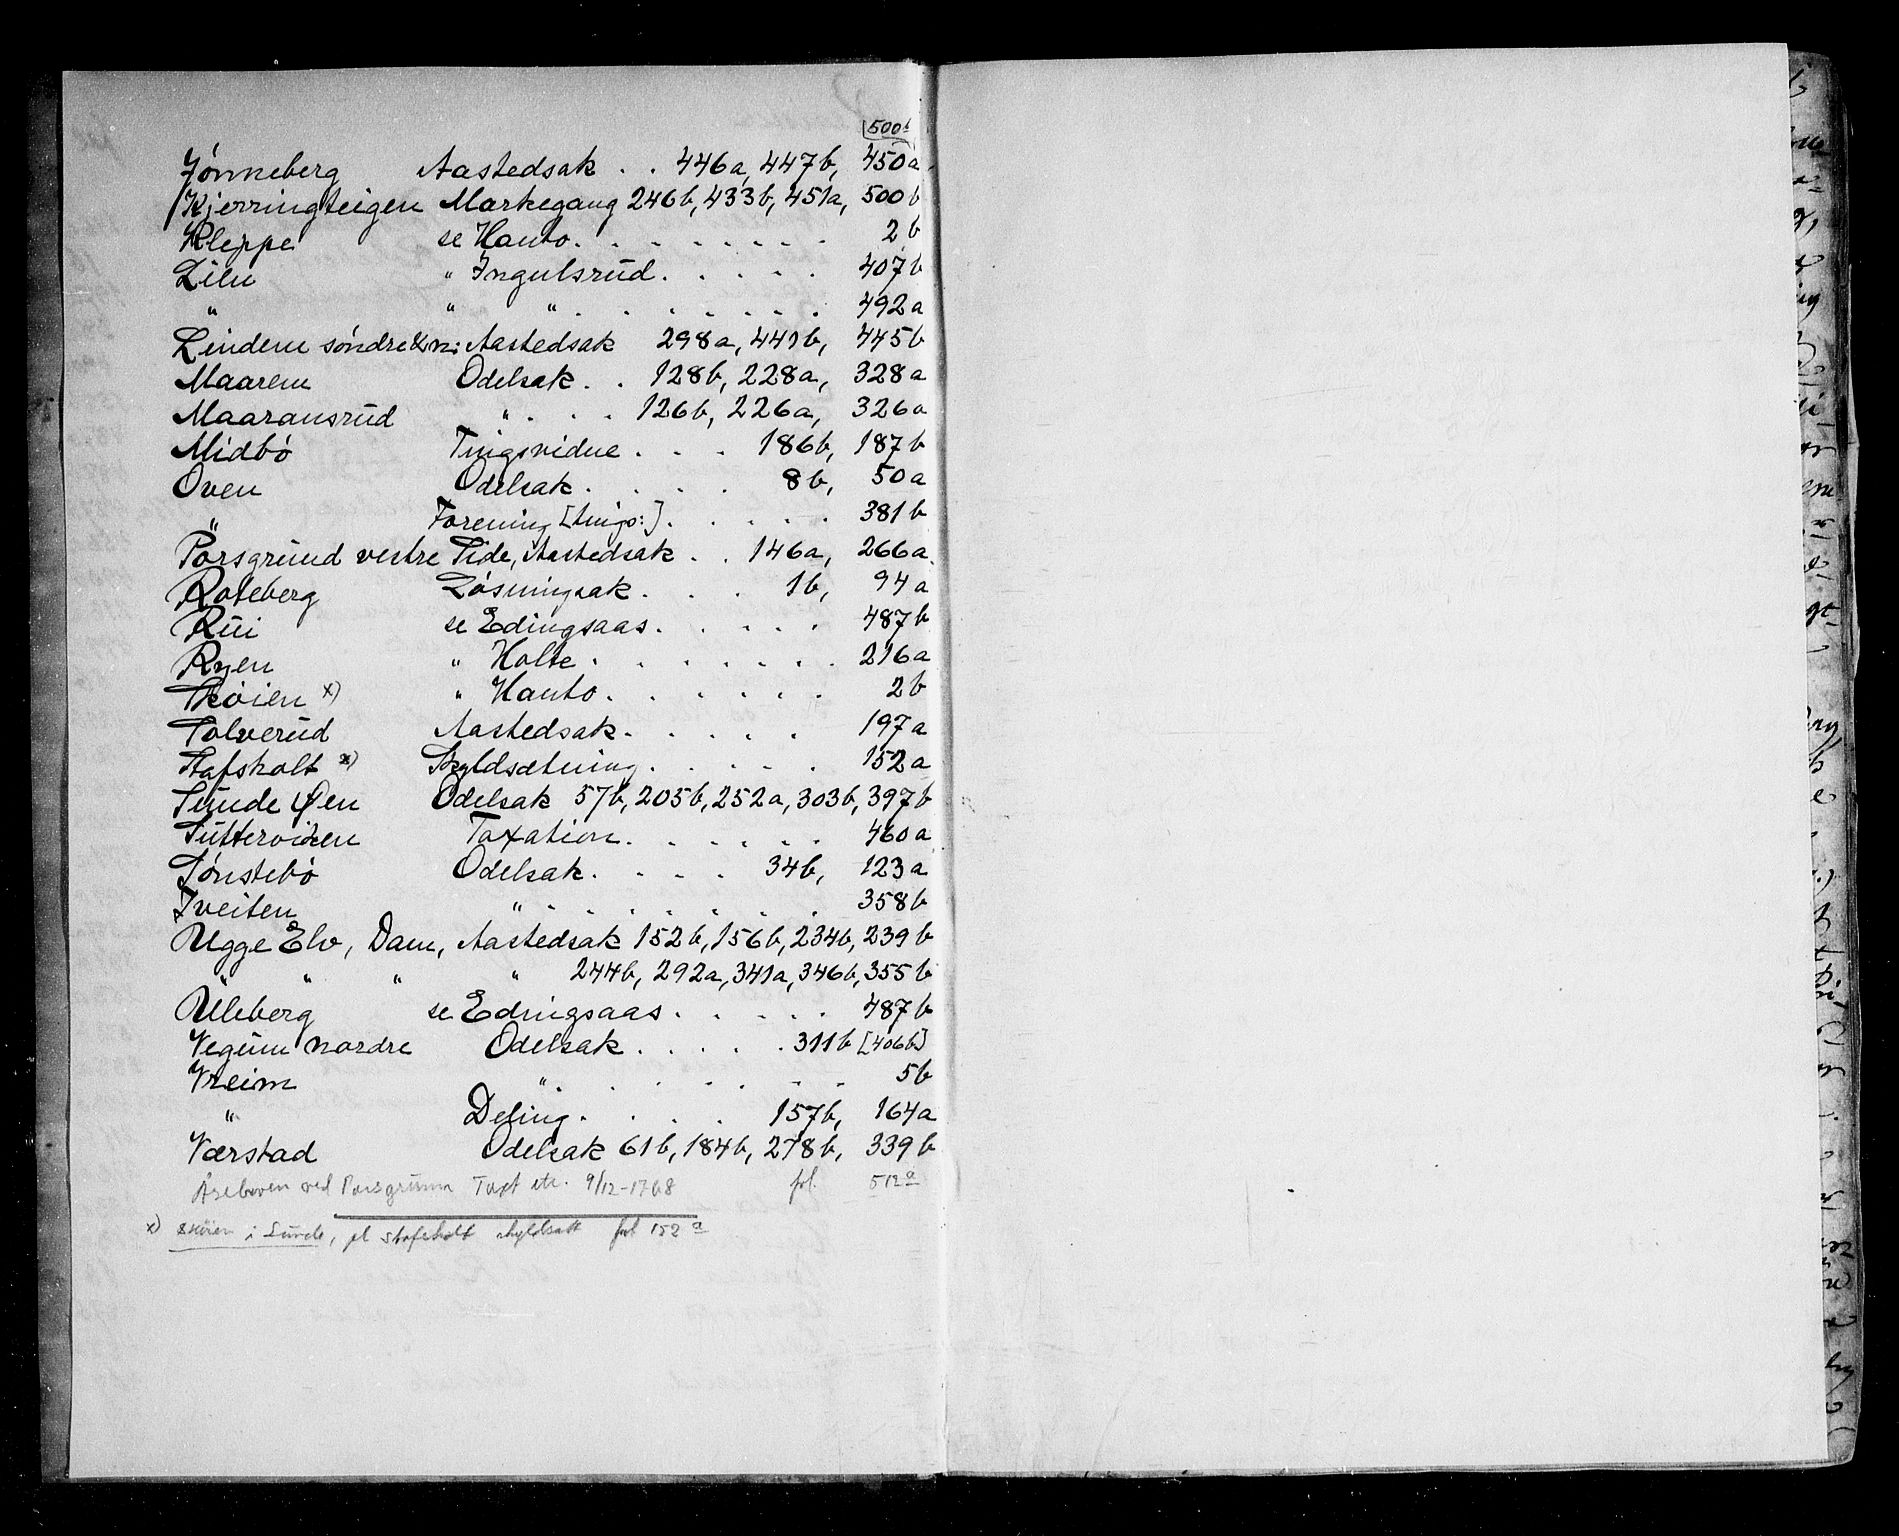 500b
Jønneberg Aastedsak . . 446a, 447b, 450a
Kjerringteigen Markegang 246b, 433b, 451a, 500b
Kleppe se Hanto . . . . . . . . 2b
Lien " Ingulsrud . . . . . 407b
" " " . . . . . . . . 492a
Lindem søndre & n: Aastedsak 298a, 441b, 445b
Maarem Odelsak . . 128b, 228a, 328a
Maaransrud " . . . 126b, 226a, 326a
Midbø Tingsvidne . . . 186b, 187b
Oven Odelsak . . . . 8b, 50a
" Forening [tings:] . . . . . 381b
Porsgrund vestre Side, Aastedsak . . 146a, 266a
Roteberg Løsningsak . . . 1b, 94a
Rui se Edingsaas . . . . . 487b
Ryen " Holte . . . . . . . 216a
Skøien x) " Hanto . . . . . . 2b
Solverud Aastedsak . . . . . 197a
Stafsholt x) Skyldsætning . . . . . 152a
Sunde Øen Odelsak 57b, 205b, 252a, 303b, 397b
Taxation . . . . . . 460a
Tønstebø Odelsak . . . . 34b, 123a
Tveiten " . . . . . . . 358b
Ugge Elv, Dam, Aastedsak 152b, 156b, 234b, 239b
" " " " 244b, 292a, 341a, 346b, 355b
Uleberg se Edingsaas . . . . . 487b
Vegum nordre Odelsak . . . . . 311b [406b]
Vreim " . . . . . . . 5b
" Deling . . . . 157b, 164a
Værstad Odelsak 61b, 184b, 278b, 339b
ved Porsgrunn Taxt etc. 9/12-1768 fol. 512a
x) Skøien i Sunde, pl Stafsholt skyldsatt fol 152a